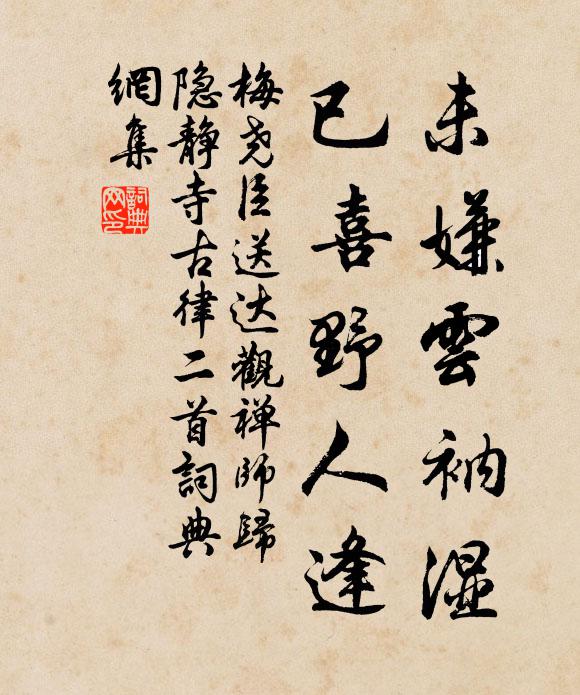 未嫌雲衲湿
已喜野人逢
梅尭臣送达觀禅师歸
隐静寺古律二首詞典
網集
詞典網印